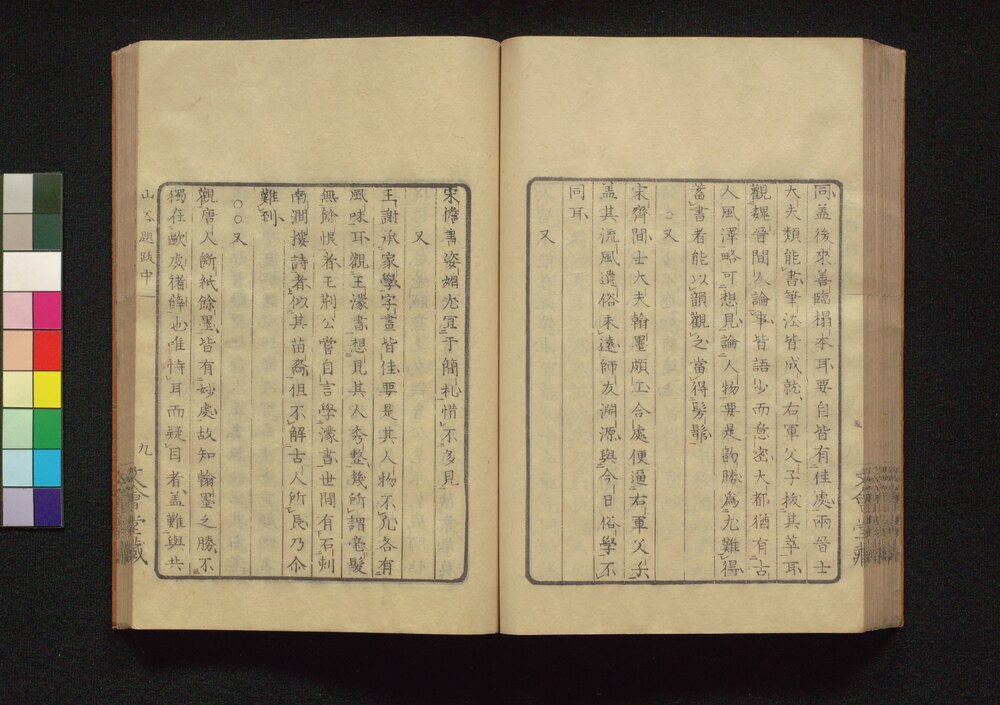 同盖後來善臨搨本耳要自皆有佳處兩晉士
大夫類能書筆法皆成就右軍父子拔其萃耳
觀魏晉間人論事皆語少而意密大都猶有古
人風澤略可想見論人物要是韵勝爲尤難得
蓄書者能以韻觀之當得髣髴
又
宋齊間士大夫翰墨頗工合處便逼右軍父子
盖其流風遺俗未遠師友淵源與今日俗學不
同耳
又
宋儋書姿媚尤宜于簡札惜不多見
又
王謝承家學字畫皆佳要是其人物不凡各有
風味耳觀王濛書想見其人秀整幾所謂毫髮
無餘恨者王荆公嘗自言學濛書世間有石刻
南澗樓詩者似其苗裔但不解古人所長乃尒
難到
○○又
觀唐人斷紙餘墨皆有妙處故知翰墨之勝不
獨在歐虞褚薛也唯恃耳而疑目者盖難與共
山谷題跋中
九
文會堂藏
文會堂藏